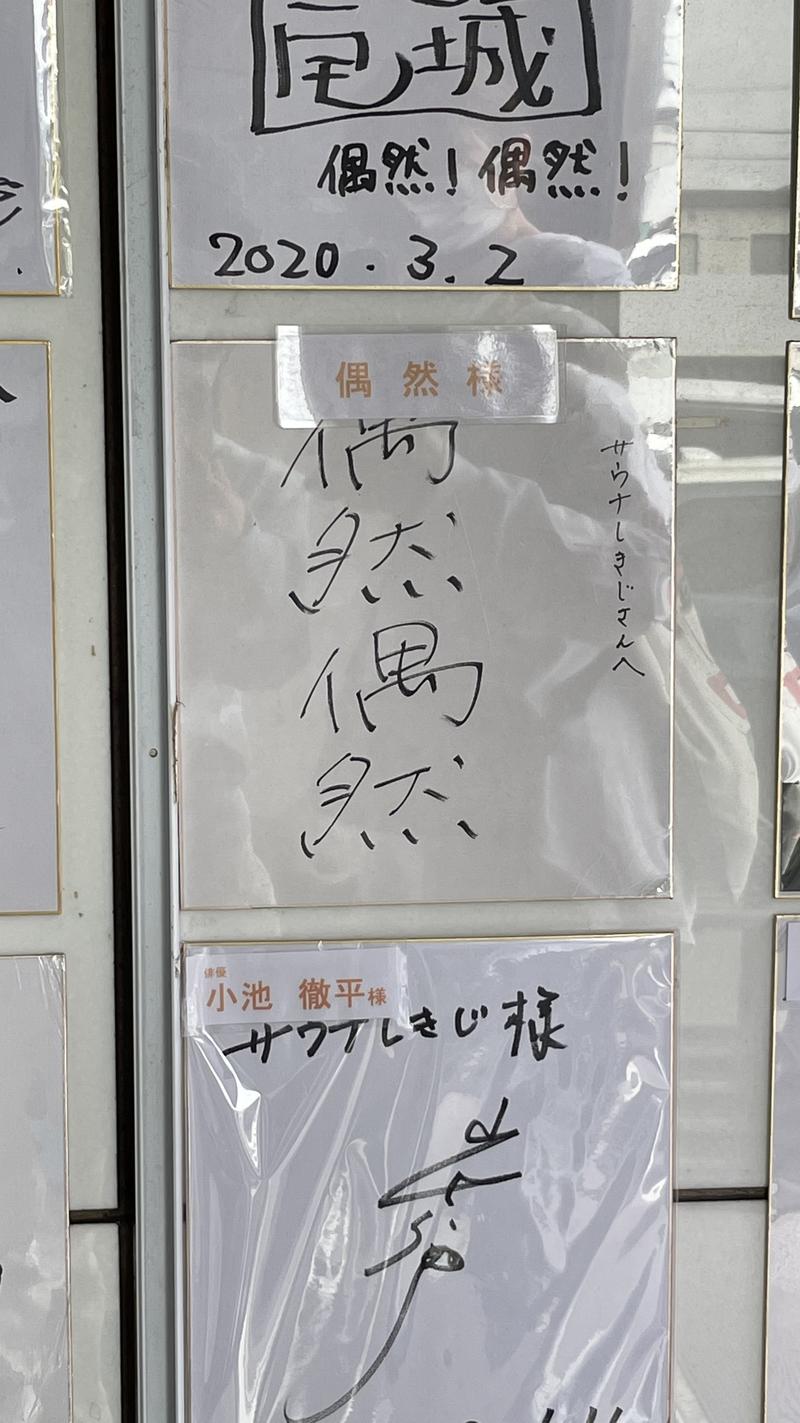 竜城
偶然!偶然!
2020.3.2
偶然様
サウナしきじさんへ
偶然偶然
俳優
小池 徹平様
サウナしきじ様